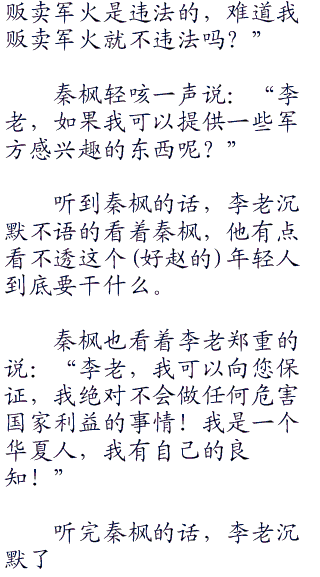 贩卖军火是违法的，难道我
贩卖军火就不违法吗？”
秦枫轻咳一声说：“李
老，如果我可以提供一些军
方感兴趣的东西呢？”
听到秦枫的话，李老沉
默不语的看着秦枫，他有点
看不透这个(好赵的)年轻人
到底要干什么。
秦枫也看着李老郑重的
说：“李老，我可以向您保
证，我绝对不会做任何危害
国家利益的事情！我是一个
华夏人，我有自己的良
知！”
听完秦枫的话，李老沉
默了